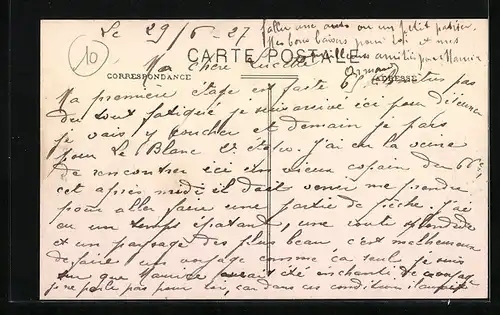 Le 29/6-27
falloir une auto ou un petit
Mes bons baisers pour toi et mes
meilleures amitiés pour Maurice
Armand
10
CARTE POSTALE
CORRESPONDANCE
ADRESSE
Ma chère Lucette
Ma première étape est faite et suis pas
du tout fatigué je suis arrivé ici pour déjeuner
je vais y coucher et demain je pars
pour Le Blanc J'ai eu la veine
de rencontrer ici un vieux copain du 66e
cet après midi il doit venir me prendre
pour aller faire une partie de pêche. J'ai
eu un temps épatant, une route splendide
et un paysage des plus beau, c'est malheureux
de faire un voyage comme ça seul, je suis
sur que Maurice aurait été enchanté de ce voyage
je ne parle pas pour toi, car dans ces conditions il aurait